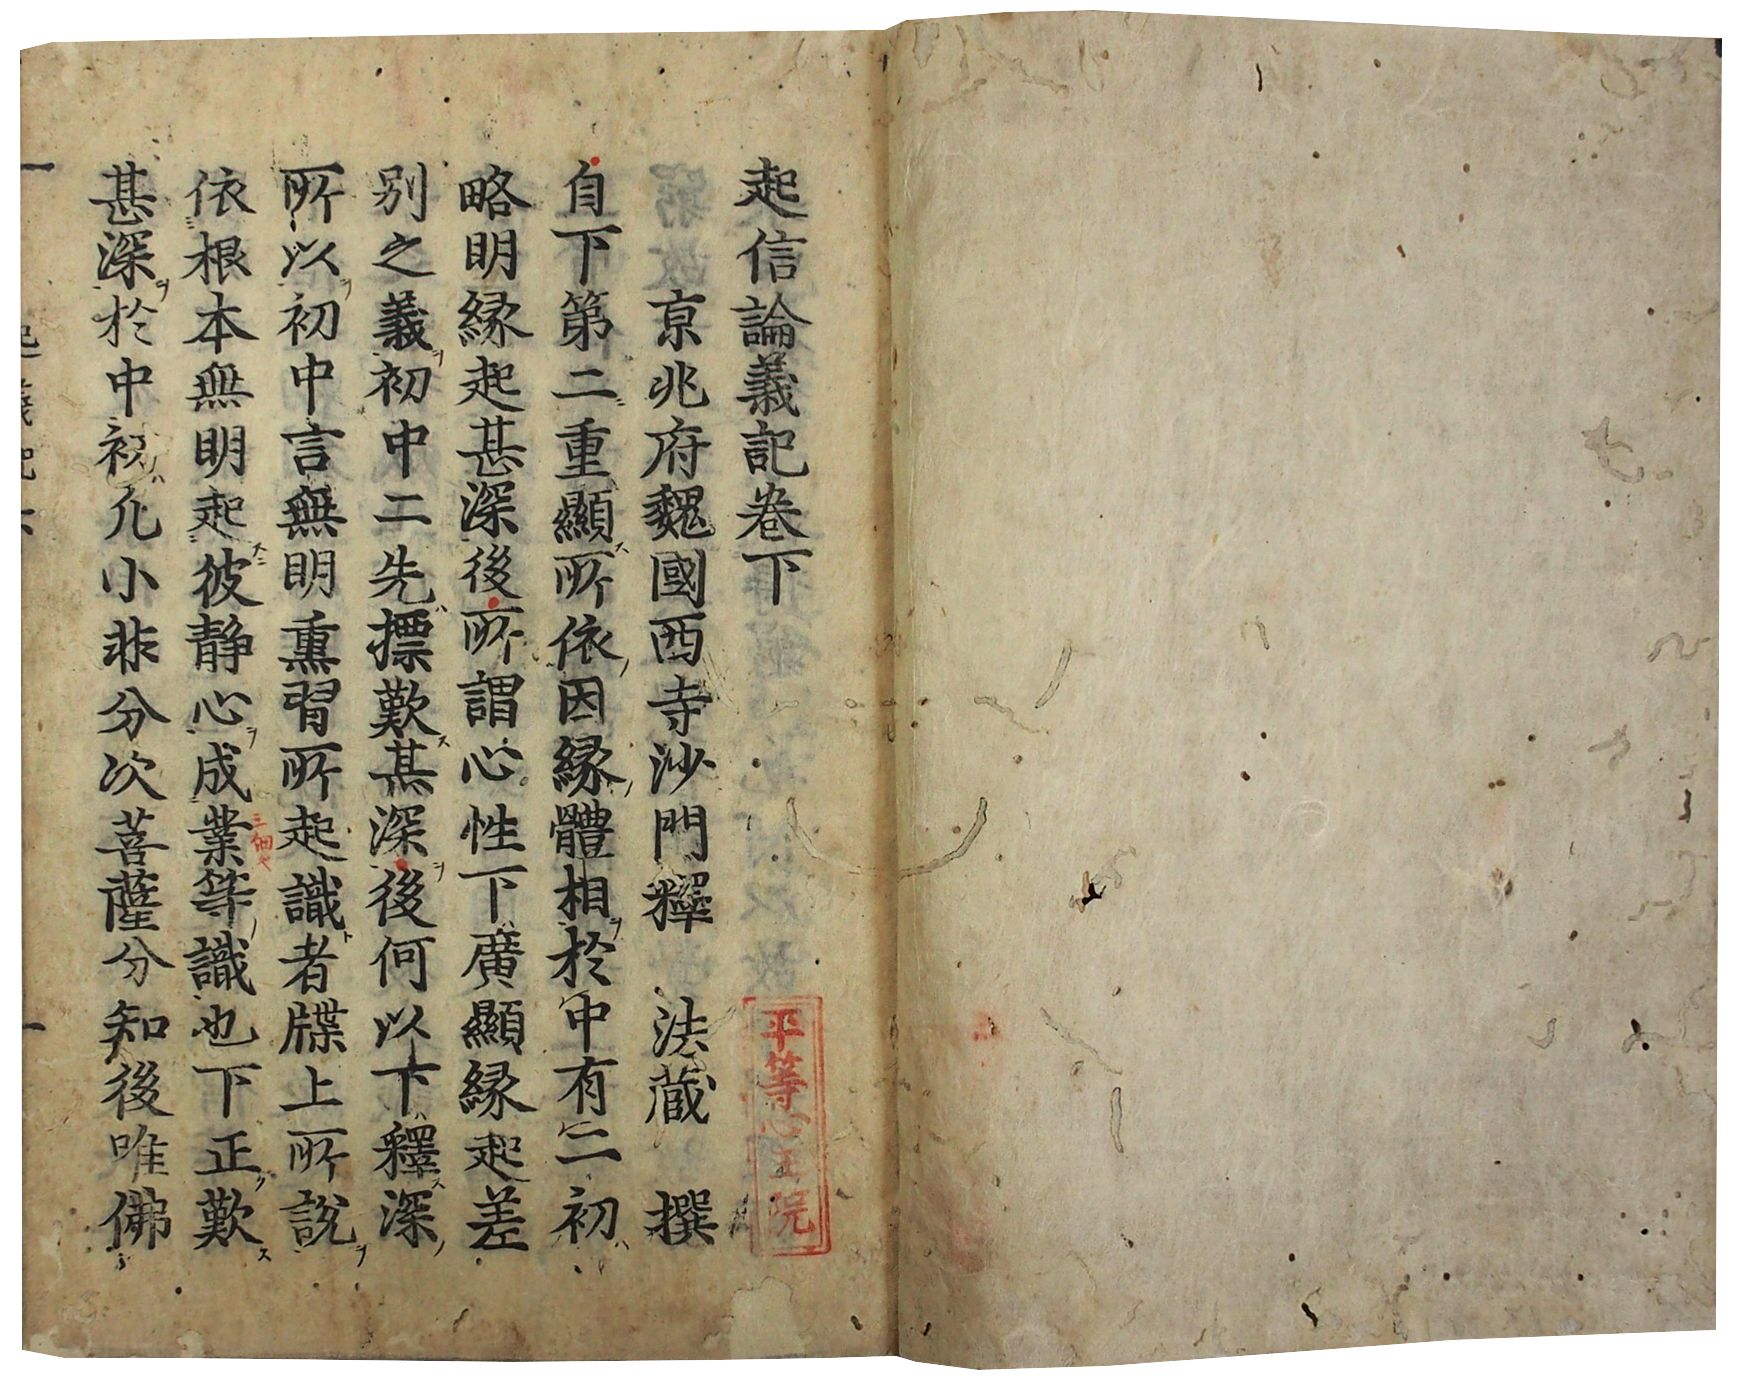 起信論義記卷下
京兆府魏國西寺沙門釋　法蔵　撰
自下第二重顯所依因縁體相於中有二初
略明縁起甚深後所謂心性下廣顯縁起差
别之義初中二先摽歎甚深後何以下釋深
所以初中言無明熏習所起識者牒上所說
依根本無明起彼静心成業等識也下正歎
甚深於中初凢小非分次菩薩分知後唯佛
三細也
平等心王院